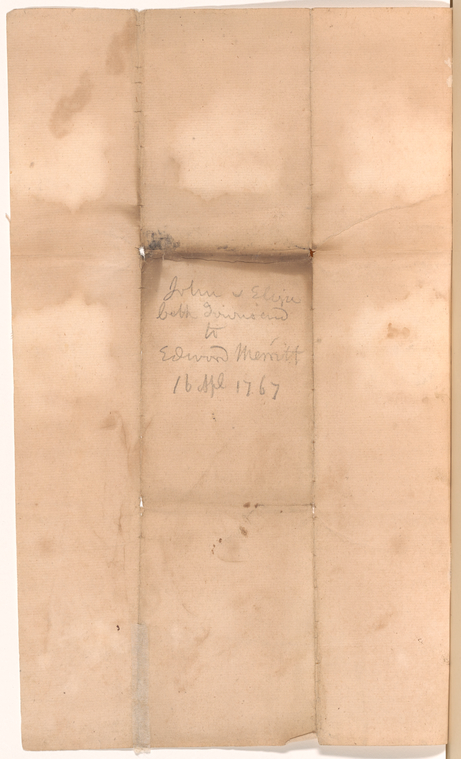 John & Eliza
beth Townsend
to
Edward Merritt
16 Apl 1767